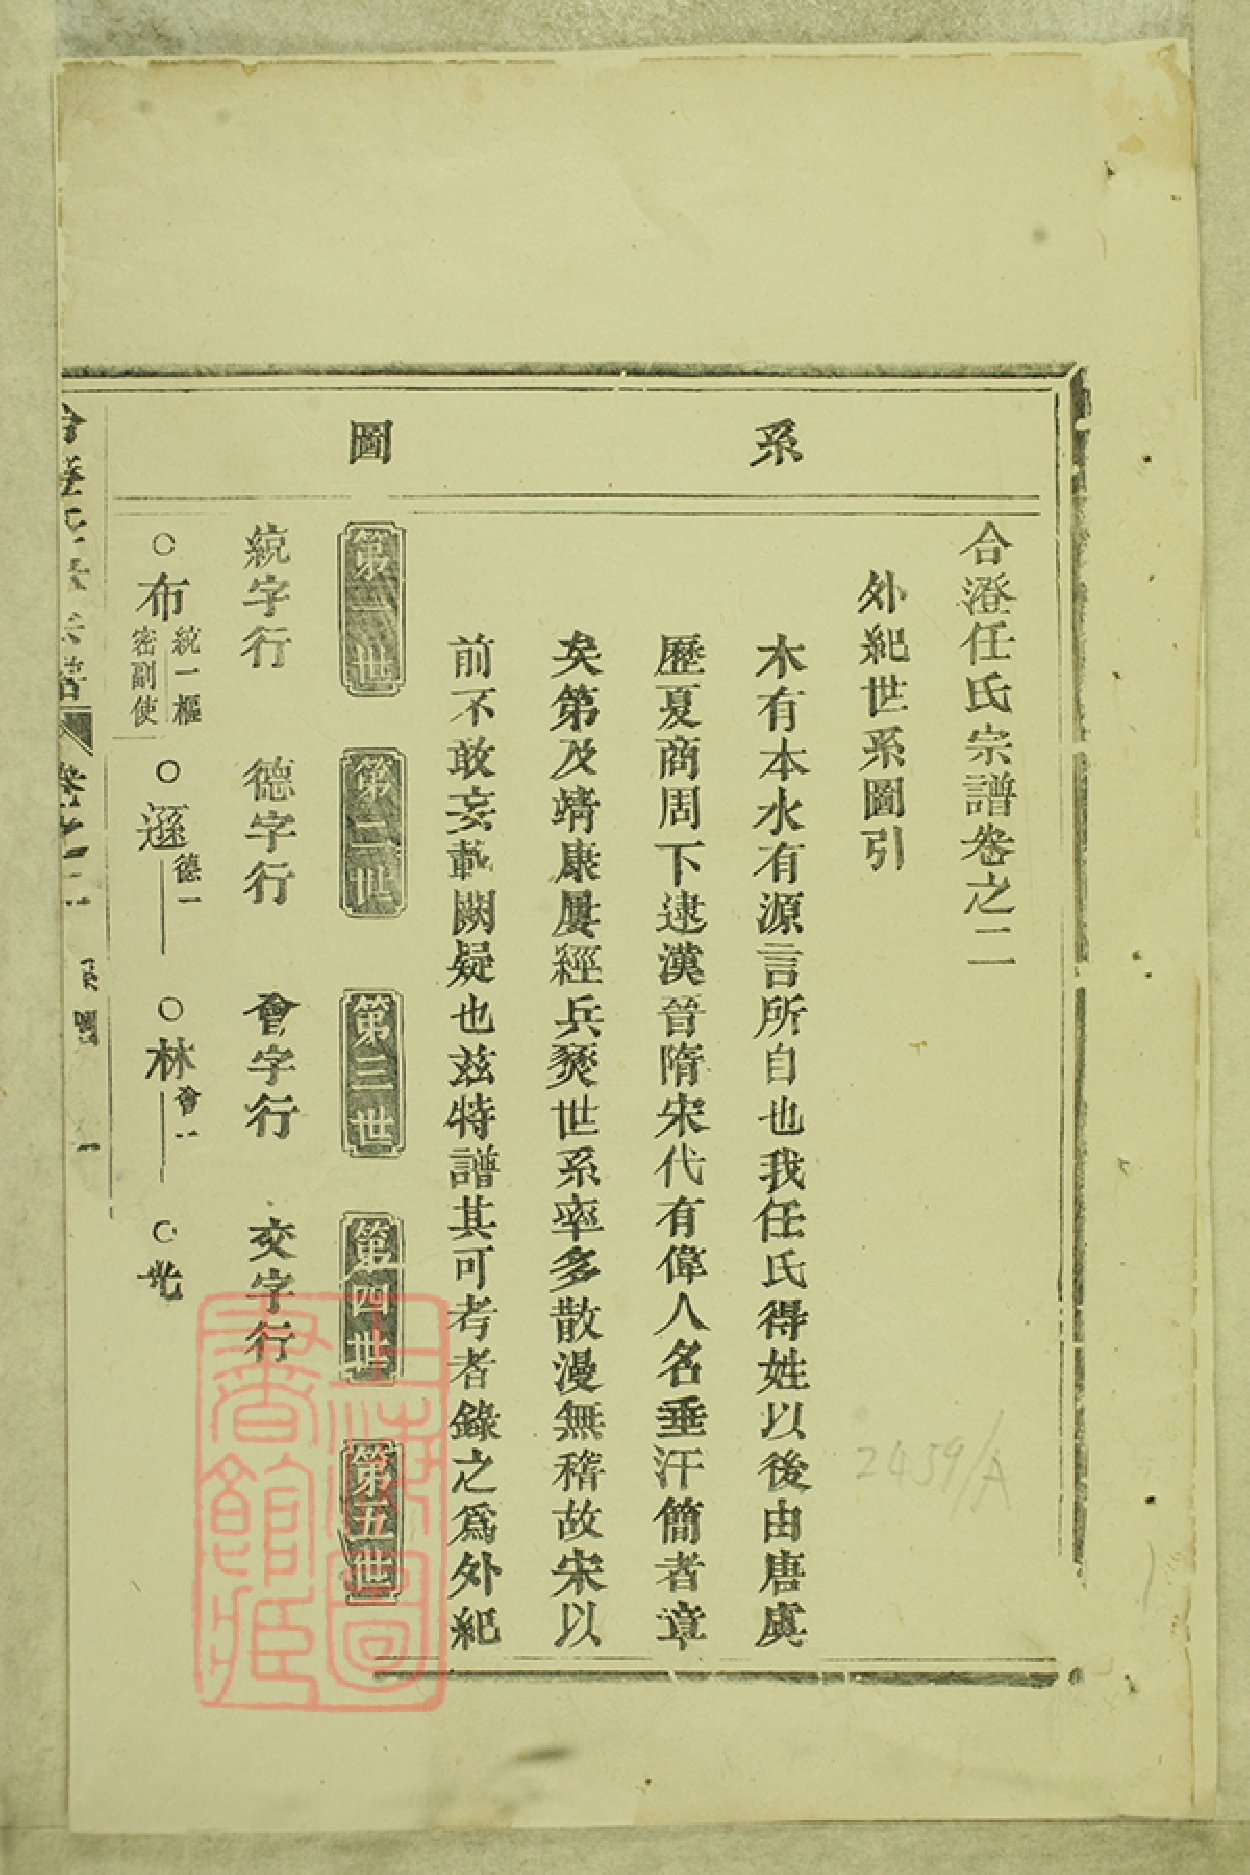 系
圖
合澄任氏宗譜卷之二
外紀世系圖引
木有本水有源言所自也我任氏得姓以後由唐虞
歷夏商周下逮漢晉隋宋代有偉人名垂汗簡者章
矣第及靖康屢經兵燹世系率多散漫無稽故宋以
前不敢妄載闕疑也玆特譜其可考者錄之爲外紀
第一世
第二世
第三世
第四世
第五世
統字行
德字行
會字行
交字行
○布
統一樞
密副使
○遜
德一
○林
會一
○光
卷之二
系圖
一
上海圖
書館藏
2459/A